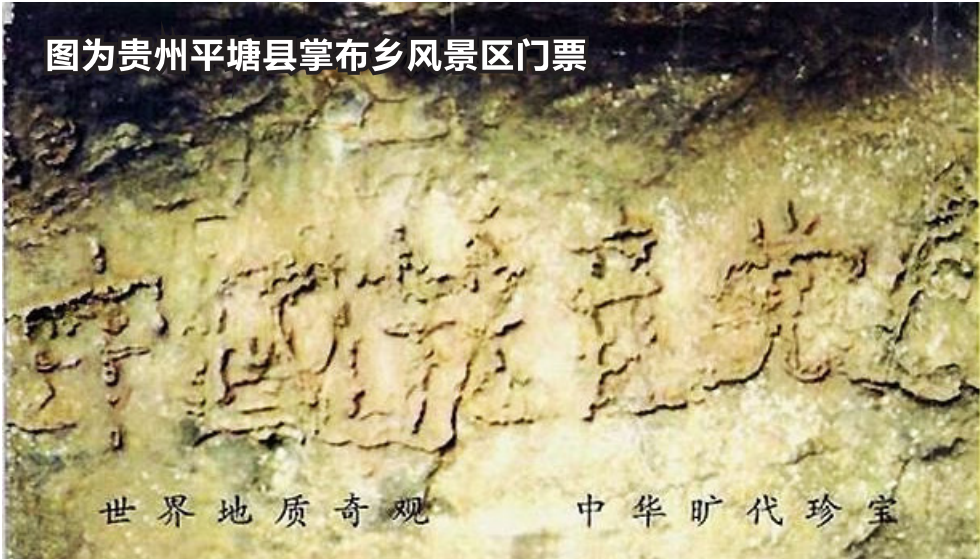 图为贵州平塘县掌布乡风景区门票
中国共产党亡
世界地质奇观 中华旷代珍宝